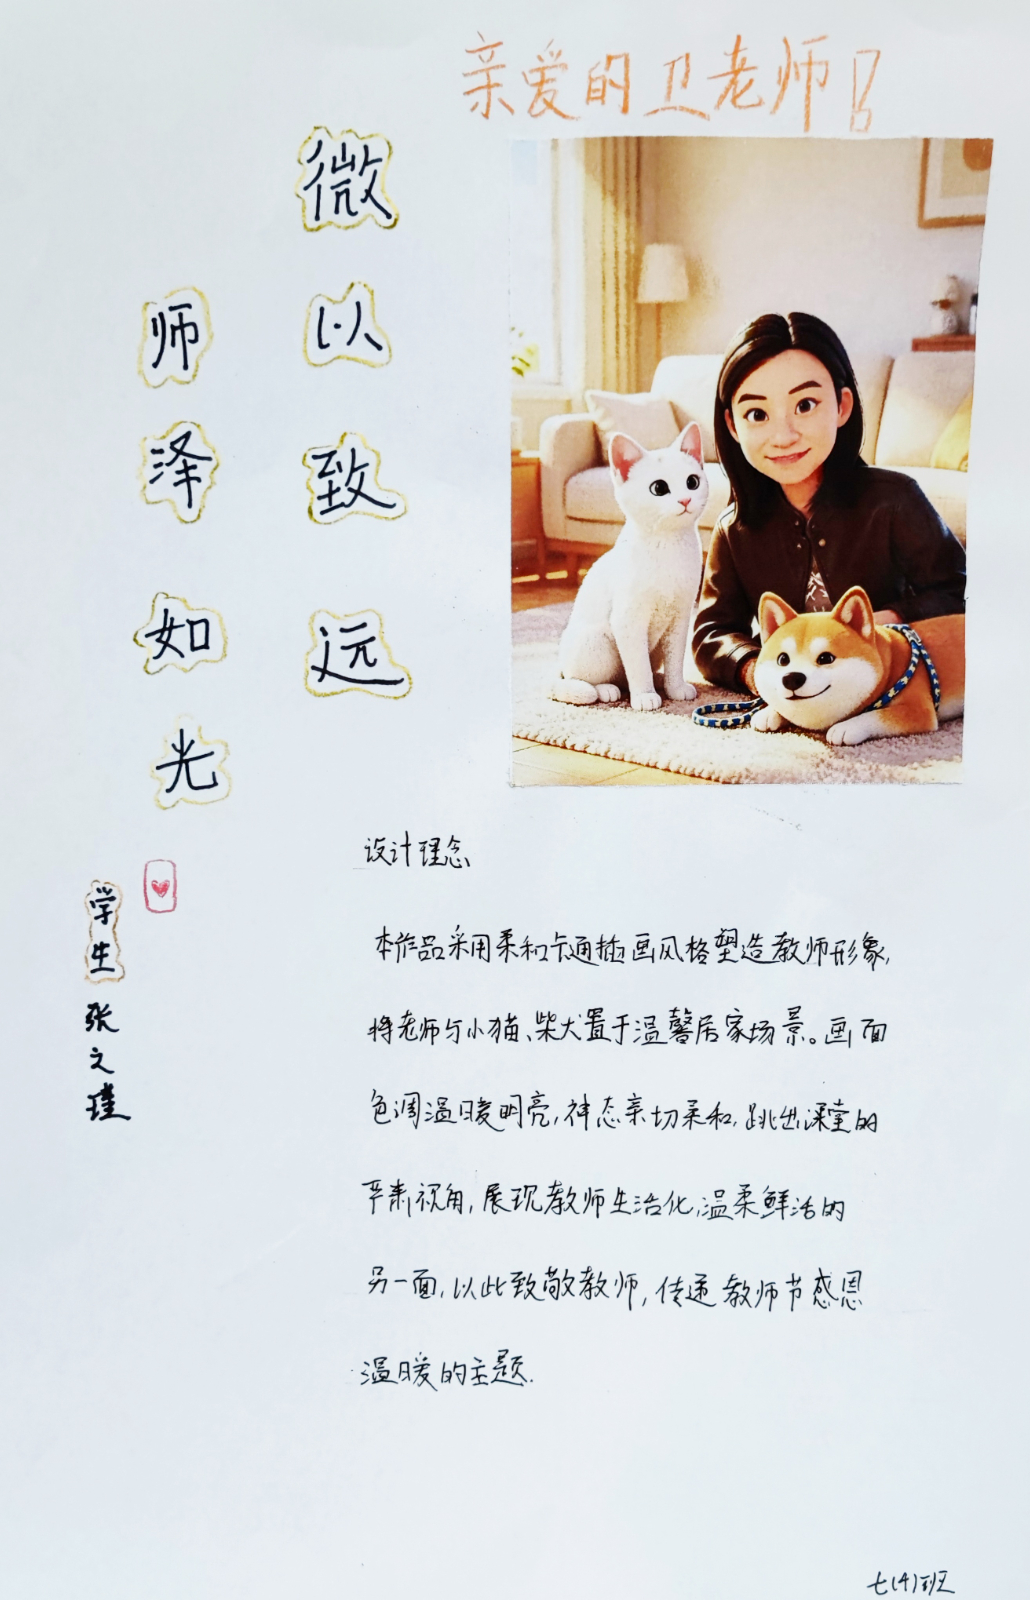 亲爱的卫老师!
微以致远
师泽如光
学生张文瑾
设计理念
本作品采用柔和卡通插画风格塑造教师形象,
将老师与小猫、柴犬置于温馨居家场景。画面
色调温暖明亮,神态亲切柔和,跳出课堂的
严肃视角,展现教师生活化,温柔鲜活的
另一面,以此致敬教师,传递教师节感恩
温暖的主题.
七(4)班